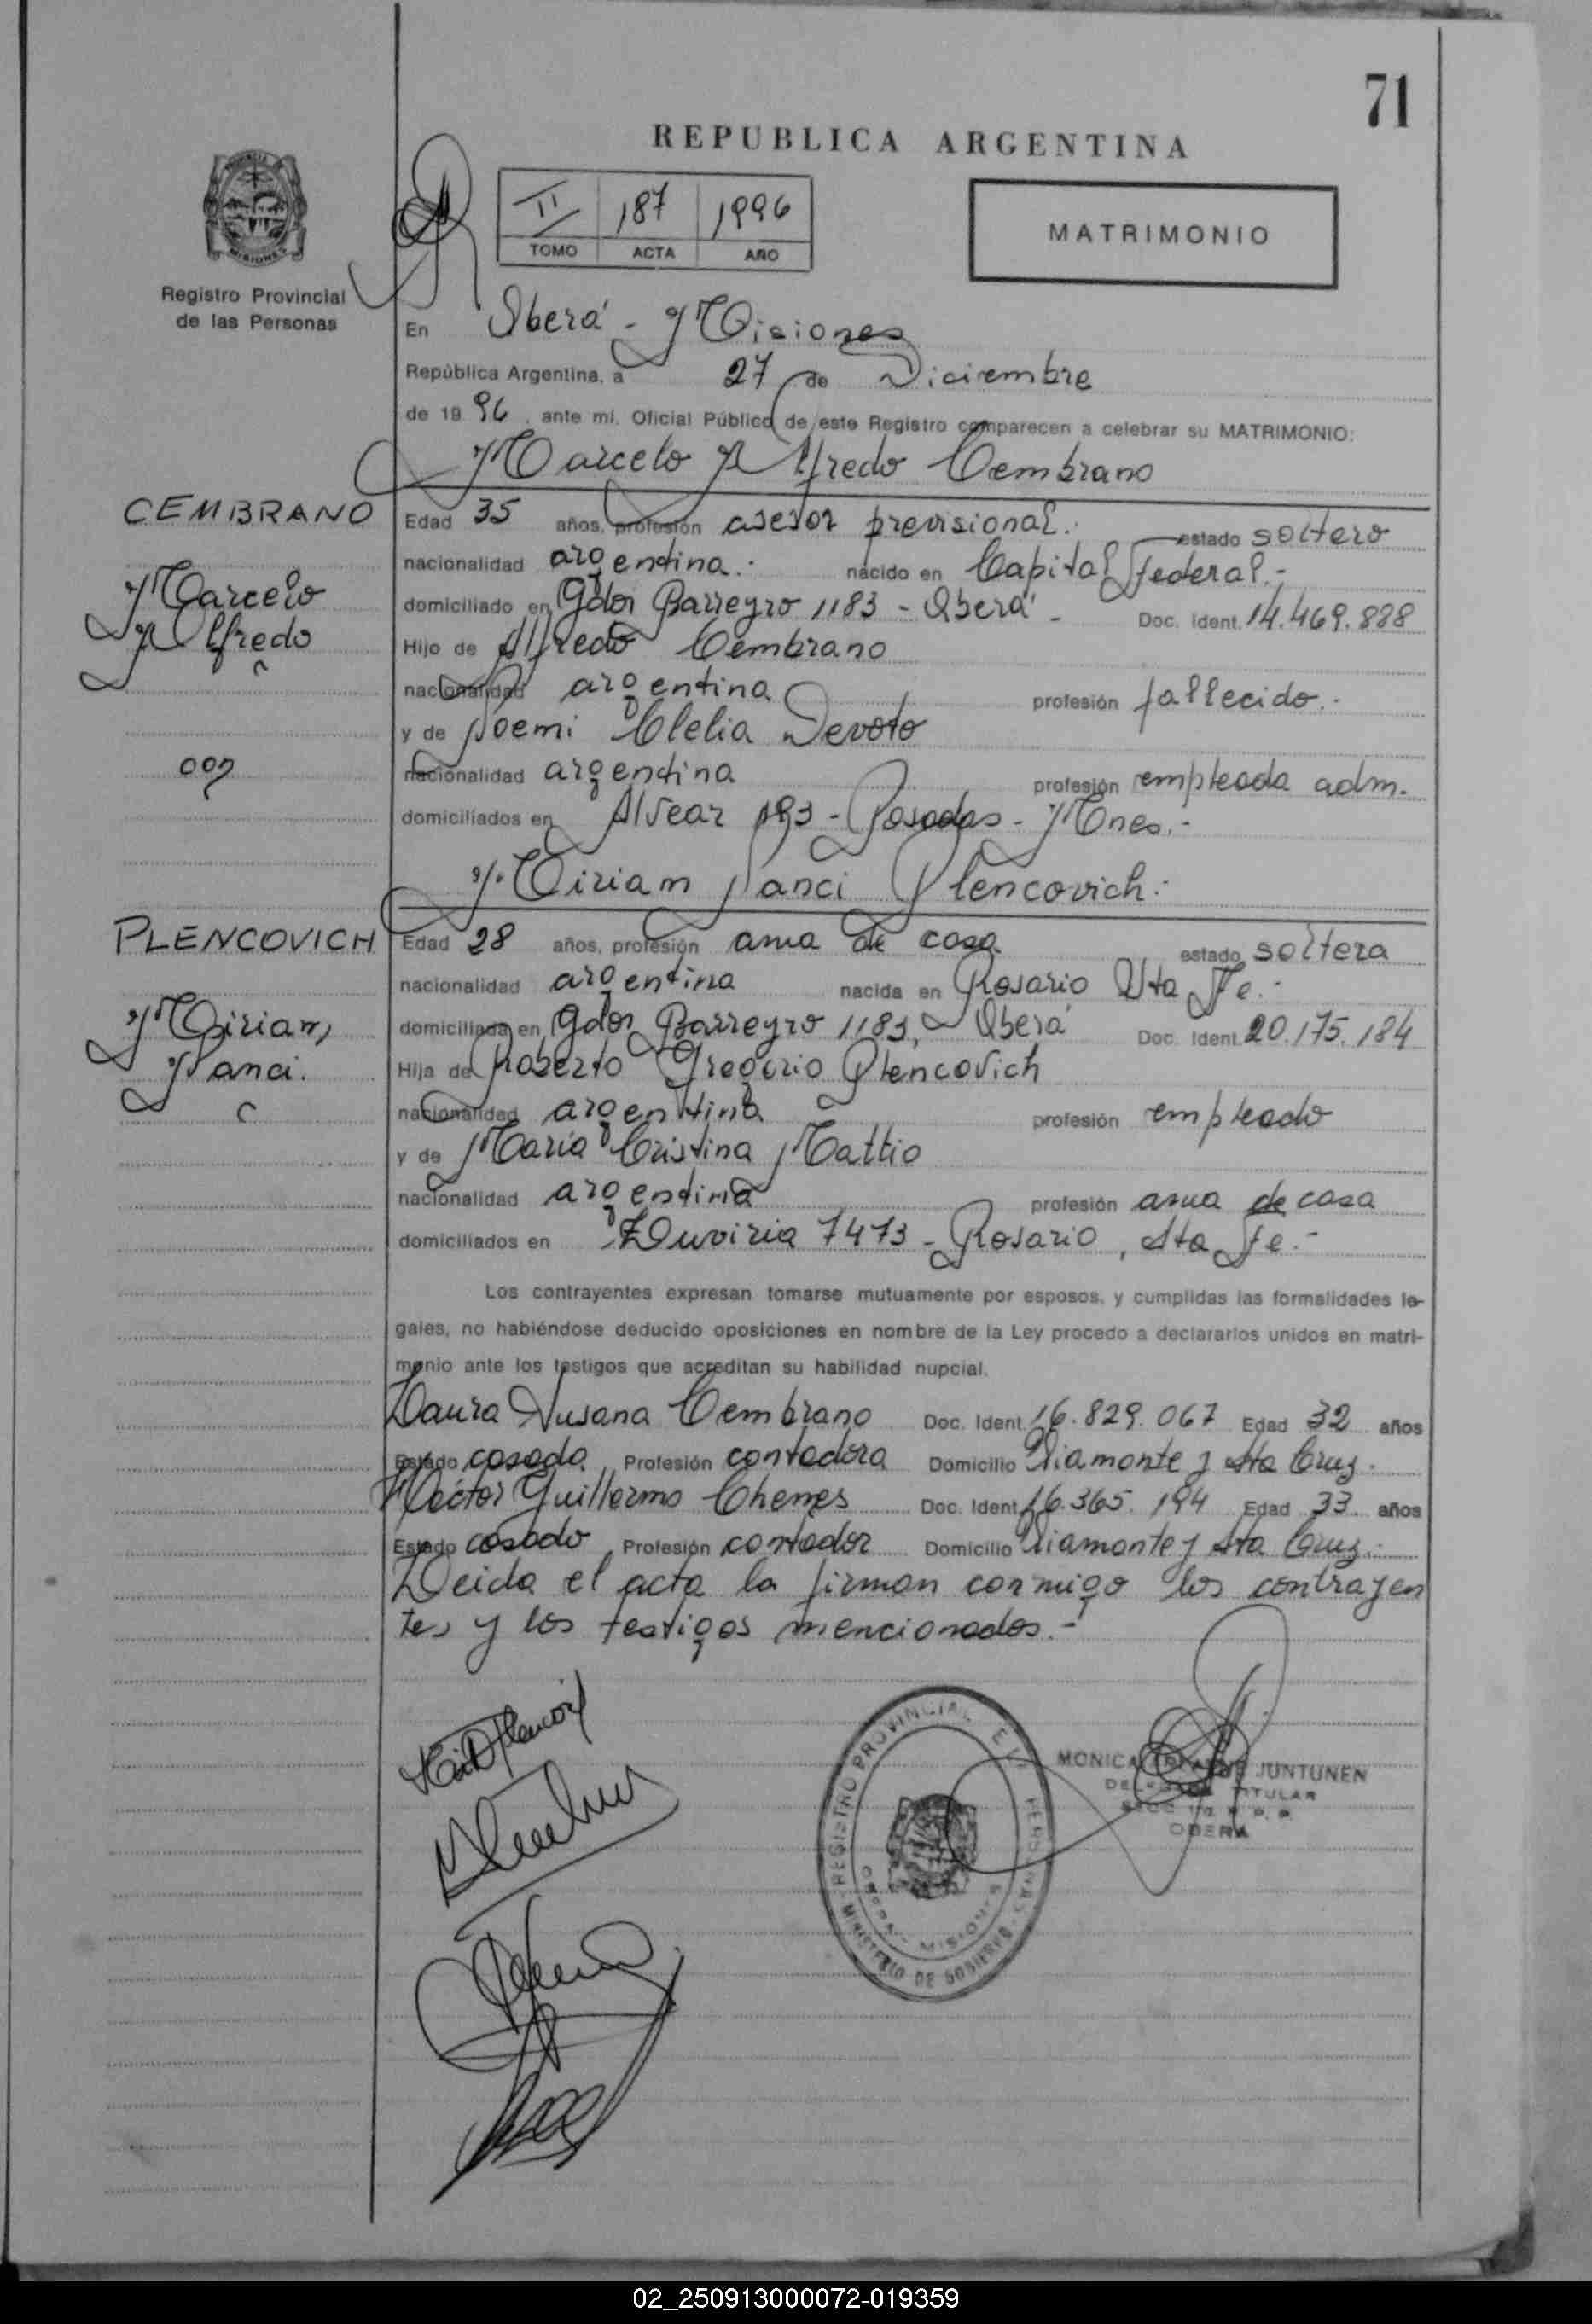 71
REPUBLICA ARGENTINA
II 187 1996
TOMO ACTA AÑO
MATRIMONIO
Registro Provincial
de las Personas
En Oberá - Misiones
República Argentina, a 27 de Diciembre
de 19 96, ante mí, Oficial Público de este Registro comparecen a celebrar su MATRIMONIO:
Marcelo Alfredo Cembrano
CEMBRANO
Marcelo
Alfredo
Edad 35 años, profesión asesor previsional. estado soltero
nacionalidad argentina. nacido en Capital Federal.-
domiciliado en Gdor Barreyro 1183 - Oberá - Doc. Ident. 14.469.888
Hijo de Alfredo Cembrano
nacionalidad argentina profesión fallecido.-
y de Noemi Clelia Devoto
nacionalidad argentina profesión empleada adm.
domiciliados en Alvear 193 - Posadas - Mnes.-
Miriam Nanci Plencovich.-
PLENCOVICH
Miriam
Nanci.
Edad 28 años, profesión ama de casa estado soltera
nacionalidad argentina nacida en Rosario Sta Fe.-
domiciliada en Gdor Barreyro 1183, Oberá Doc. Ident. 20.175.184
Hija de Roberto Gregorio Plencovich
nacionalidad argentina profesión empleado
y de María Cristina Mattio
nacionalidad argentina profesión ama de casa
domiciliados en Zuviria 7473 - Rosario, Sta Fe.-
Los contrayentes expresan tomarse mutuamente por esposos, y cumplidas las formalidades le-
gales, no habiéndose deducido oposiciones en nombre de la Ley procedo a declararlos unidos en matri-
monio ante los testigos que acreditan su habilidad nupcial.
Laura Susana Cembrano Doc. Ident. 16.829.067 Edad 32 años
Estado casada Profesión contadora Domicilio Diamonte y Sta Cruz.
Héctor Guillermo Chemes Doc. Ident. 16.365.194 Edad 33 años
Estado casado Profesión contador Domicilio Diamonte y Sta Cruz.-
Leida el acta la firman conmigo los contrayen
tes y los testigos mencionados.-
REGISTRO PROVINCIAL DE LAS PERSONAS
MINISTERIO DE GOBIERNO
OBERA - MISIONES
MONICA JUNTUNEN
TITULAR
OBERA
02_250913000072-019359